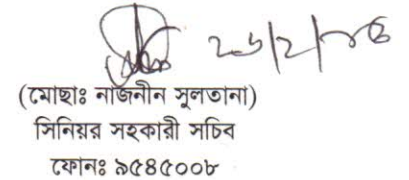 (মোছাঃ নাজনীন সুলতানা)
সিনিয়র সহকারী সচিব
ফোনঃ ৯৫৪৫০০৮